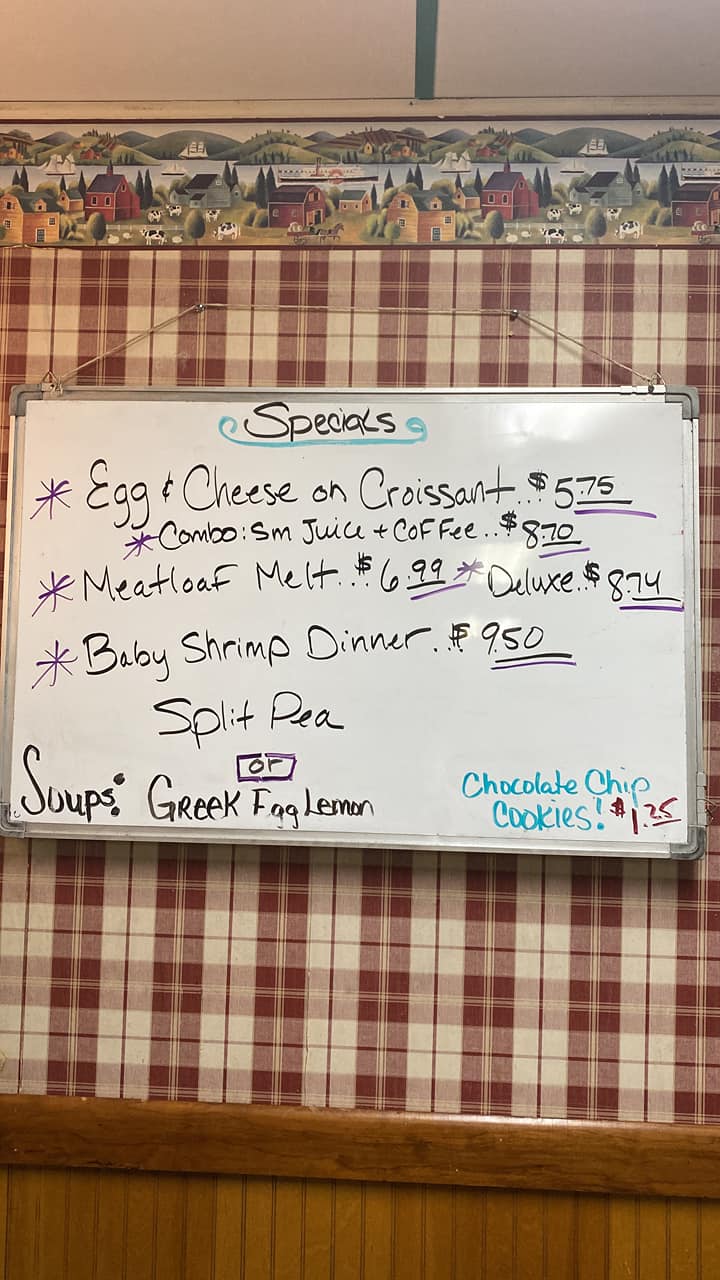 Specials
* Egg & Cheese on Croissant..$5.75
* Combo: Sm Juice + Coffee..$8.70
* Meatloaf Melt..$6.99 * Deluxe.$8.74
* Baby Shrimp Dinner..$9.50
Split Pea
or
Soups: Greek Egg Lemon
Chocolate Chip
Cookies! $1.25